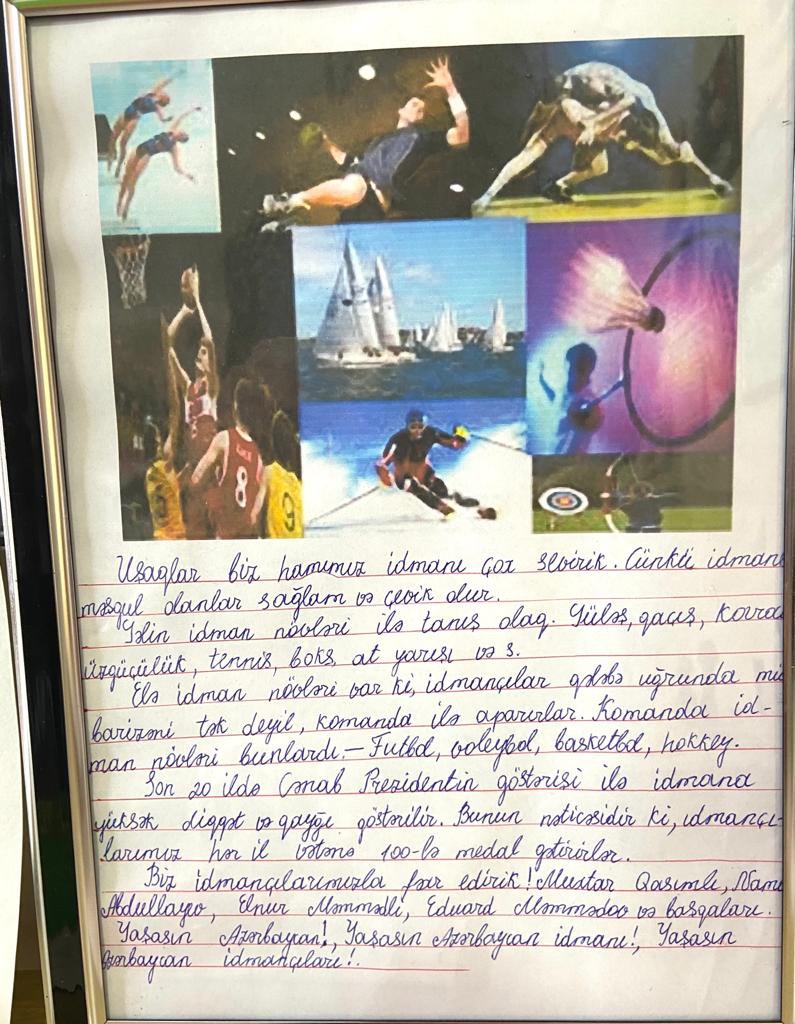 8
9
Uşaqlar biz hamımız idmanı çox sevirik. Çünkü idmanı
məşgul olanlar sağlam və çevik olur.
Gəlin idman növləri ilə tanış olaq. Güləş, qaçış,
üzgüçülük, tennis, boks, at yarışı və s.
Elə idman növləri var ki, idmançılar qələbə uğrunda mü
barizəni tək deyil, komanda ilə aparırlar. Komanda id-
man növləri bunlardı. – Futbol, voleybol, basketbol, hokkey.
Son 20 ildə Cənab Prezidentin göstərişi ilə idmana
yüksək diqqət və qayğı göstərilir. Bunun nəticəsidir ki, idmançı-
larımız hər il vətənə 100-lə medal gətirirlər.
Biz idmançılarımızla fəxr edirik! Muxtar Qasımlı,
Abdullayev, Elnur Məmmədli, Eduard Məmmədov və başqaları.
Yaşasın Azərbaycan!, Yaşasın Azərbaycan idmanı!, Yaşasın
Azərbaycan idmançıları!.